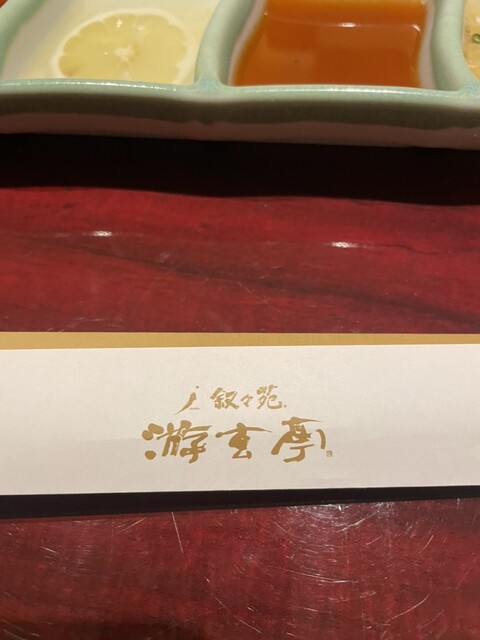 叙々苑
游玄亭